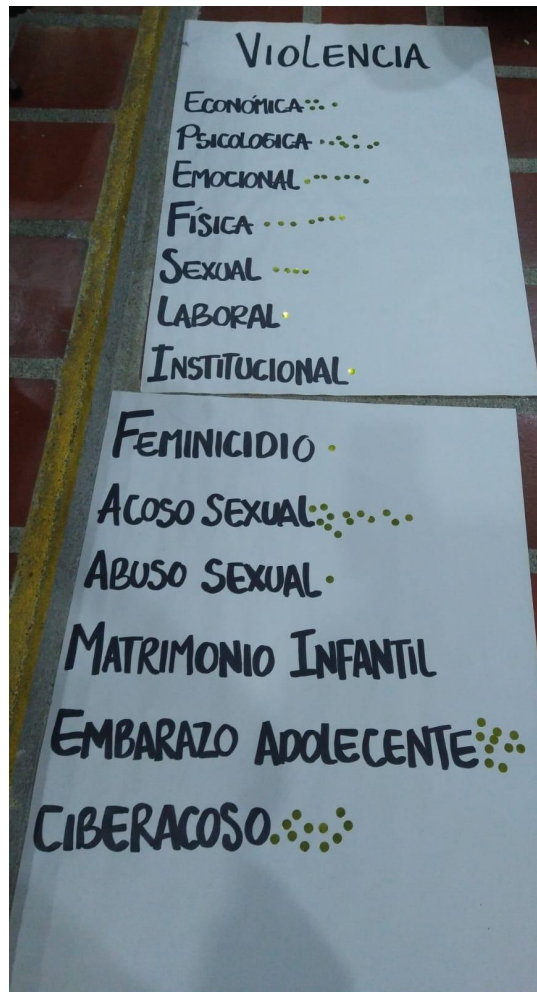 VIOLENCIA
ECONÓMICA
PSICOLOGICA
EMOCIONAL
FÍSICA
SEXUAL
LABORAL
INSTITUCIONAL
FEMINICIDIO
ACOSO SEXUAL
ABUSO SEXUAL
MATRIMONIO INFANTIL
EMBARAZO ADOLECENTE
CIBERACOSO